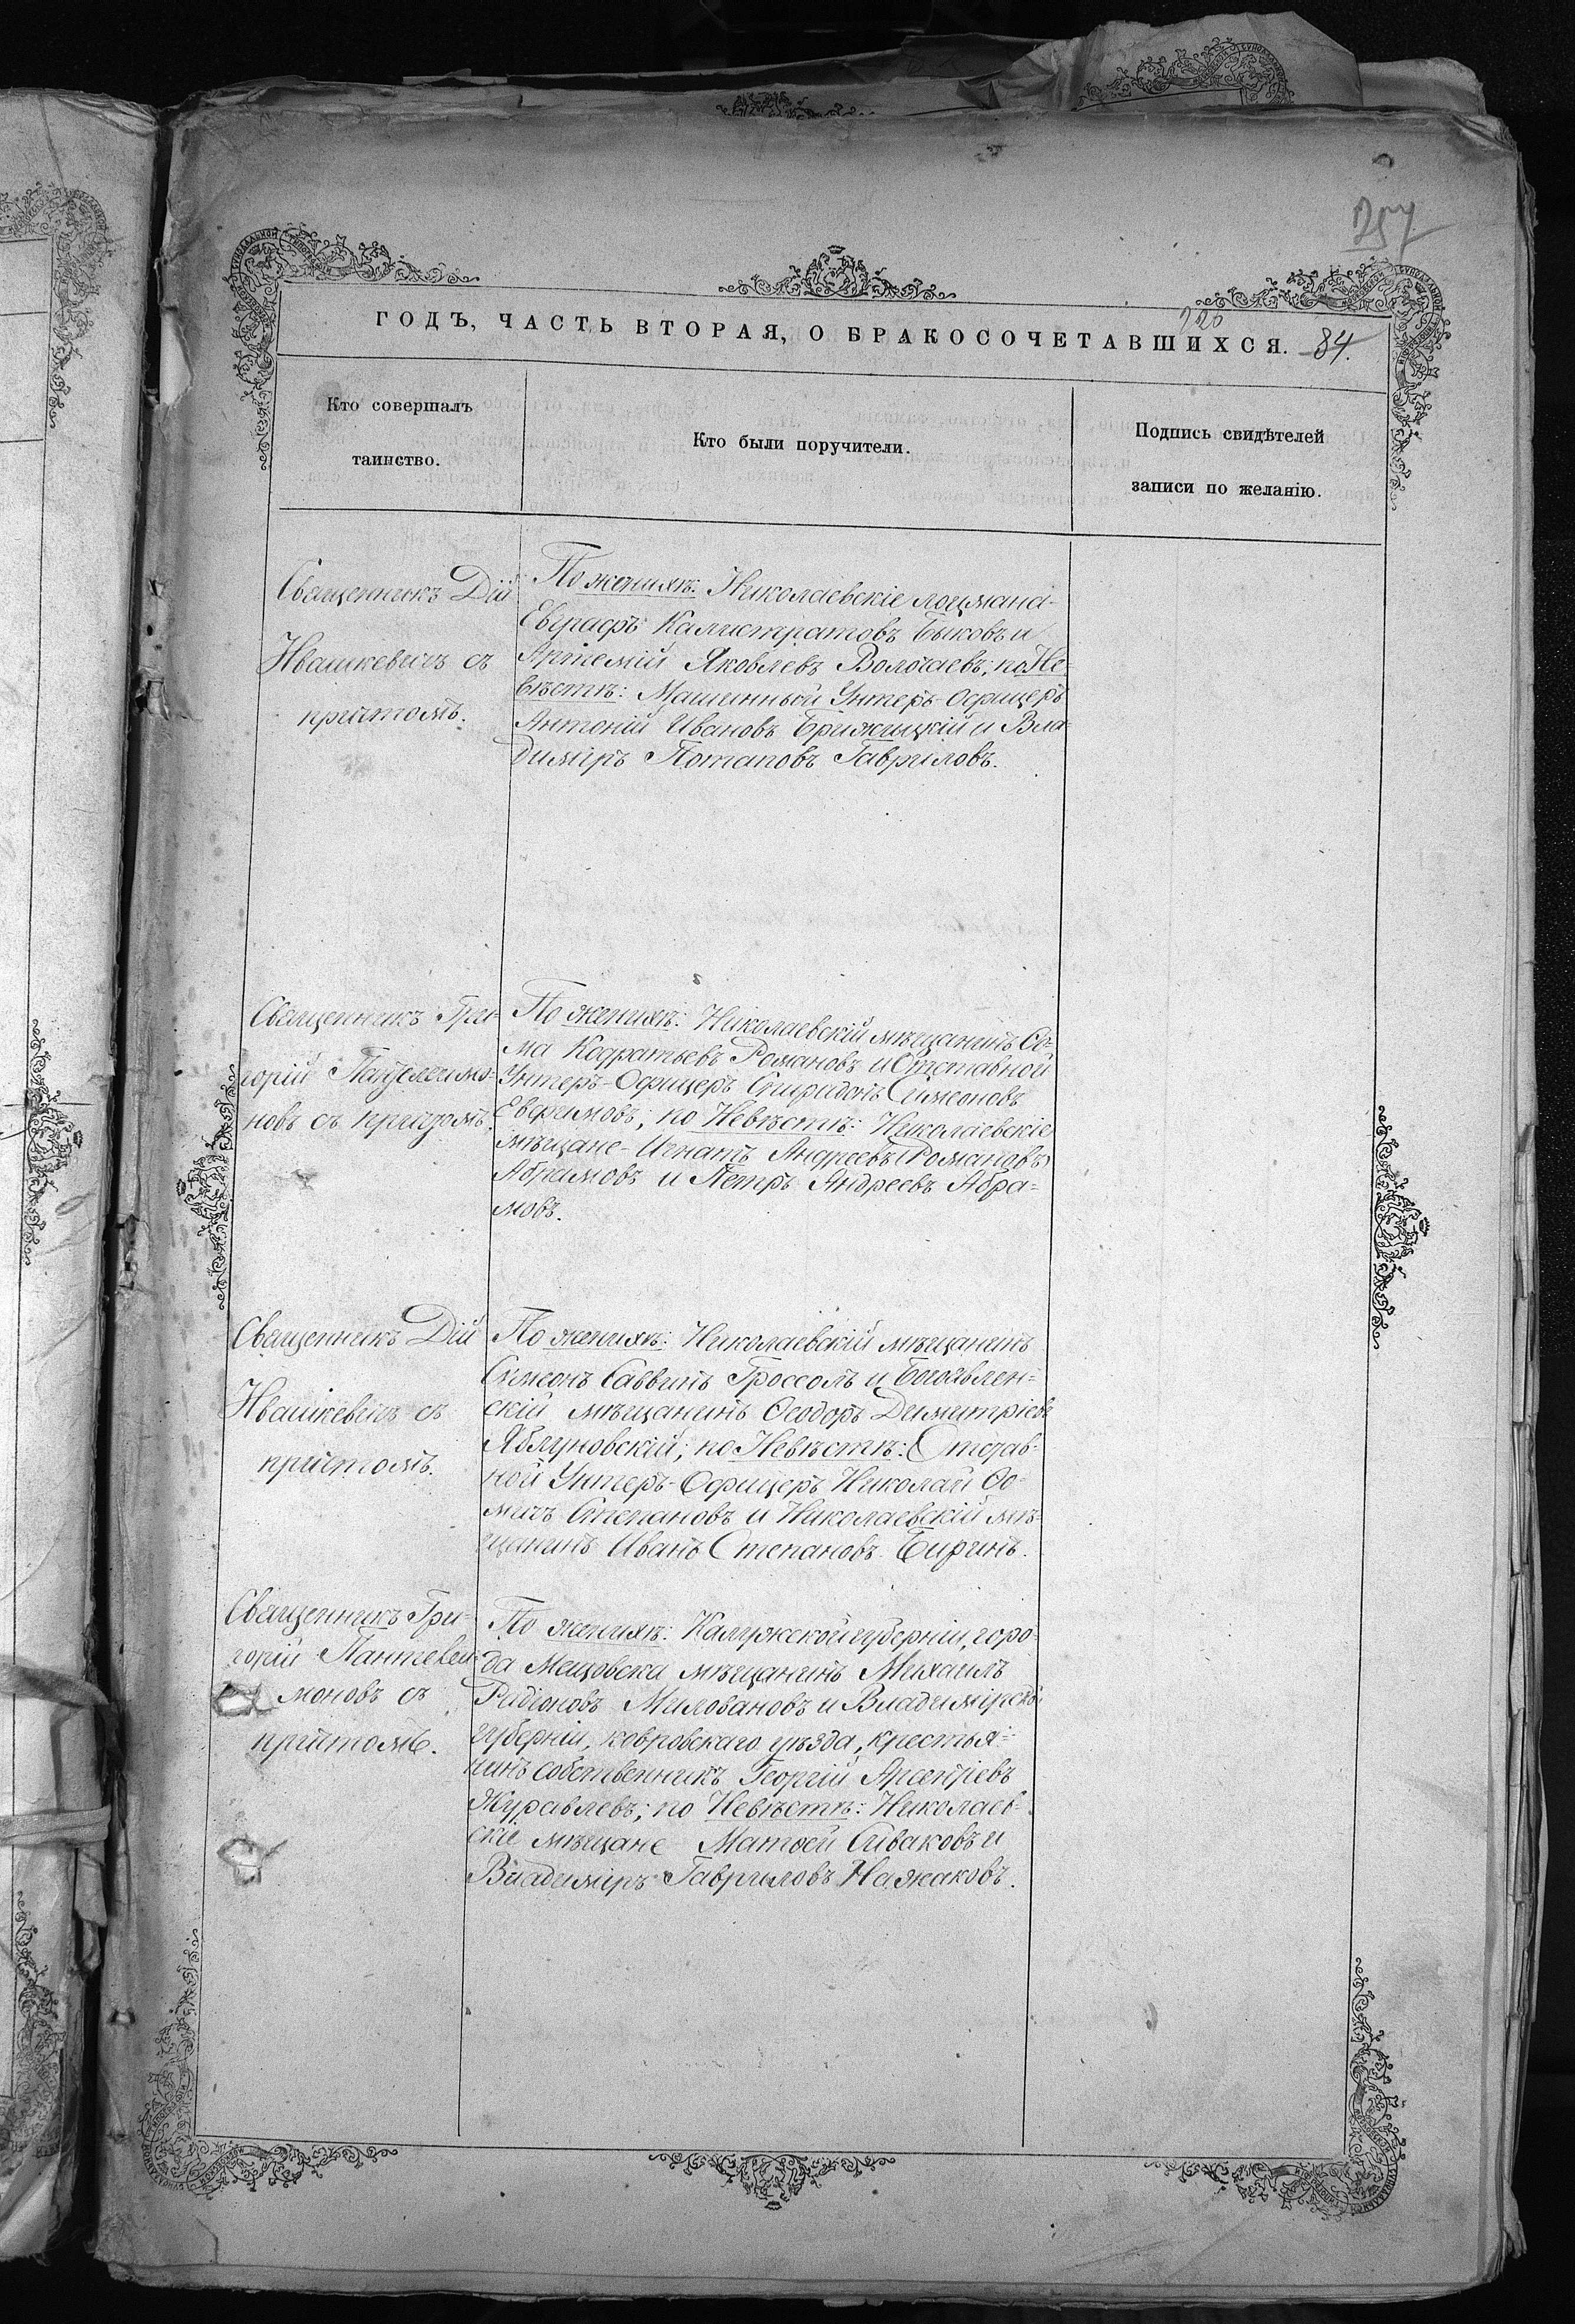 257
720
ГОДЪ, ЧАСТЬ ВТОРАЯ, О БРАКОСОЧЕТАВШИХСЯ. 84.
Кто совершалъ
таинство.
Кто были поручители.
Подпись свидѣтелей
записи по желанію.
Священникъ Дій
Ивашкевичъ съ
причтомъ.
По женихѣ: Николаевскіе лоцмана-
Евграфъ Калистратовъ Быковъ и
Артемій Яковлевъ Волочаевъ; по Не-
вѣстѣ: Машинный Унтеръ-Офицеръ
Антоній Ивановъ Брижицкій и Вла-
димиръ Потаповъ Гавриловъ.
Священникъ Гри-
горій Пантелеимо-
новъ съ причтомъ.
По женихѣ: Николаевскій мѣщанинъ Ѳо-
ма Кодратьевъ Романовъ и Отставной
Унтеръ-Офицеръ Спиридонъ Симеоновъ
Евфимовъ; по Невѣстѣ: Николаевскіе
мѣщане-Игнатъ Андреевъ (Романовъ)
Абрамовъ и Петръ Андреевъ Абра-
мовъ.
Священникъ Дій
Ивашкевичъ съ
причтомъ.
По женихѣ: Николаевскій мѣщанинъ
Симеонъ Саввинъ Гроссолъ и Богоявлен-
скій мѣщанинъ Ѳеодоръ Димитріевъ
Яблуновскій; по Невѣстѣ: Отстав-
ной Унтеръ-Офицеръ Николай Ѳо-
мичъ Степановъ и Николаевскій мѣ-
щанинъ Иванъ Степановъ Биринъ.
Священникъ Гри-
горій Пантелеи-
моновъ съ
причтомъ.
По женихѣ: Калужской губерніи, горо-
да Мещовска мѣщанинъ Михаилъ
Радіоновъ Миловановъ и Владимірской
губерніи, ковровскаго уѣзда, крестья-
нинъ собственникъ Георгій Арсеніевъ
Журавлевъ; по Невѣстѣ: Николаев-
скіе мѣщане Матѳей Сиваковъ и
Владиміръ Гавриловъ Нажаковъ.